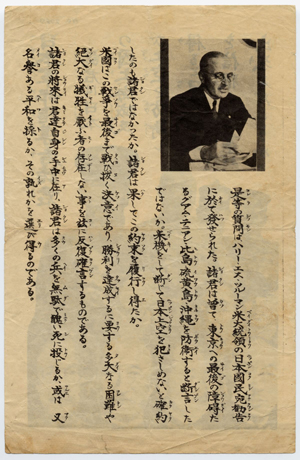 是等の質問はハリー・エス・トルーマン米大統領の日本國民宛勸告
に於て發せられた。諸君は嘗て、東京への最後の障碍た
るグアム、テニアン、比島、硫黄島、沖縄を防衛すると断言した
ではないか。米機をして断じて日本上空を犯さしめないと確約
したのも諸君ではなかったか。諸君は果してこの約束を履行し得たか。
米國はこの戦争を最後まで戦ひ抜く決意であり、勝利を達成するに要する多大なる困難や
絶大なる犠牲を厭ふ者の存在しない事を茲に反復確言するものである。
諸君の將來は君達自身の手中に在り、諸君は多くの兵を無駄で醜い死に投じるか或は又
名譽ある平和を採るか、その孰れかを選び得るのである。